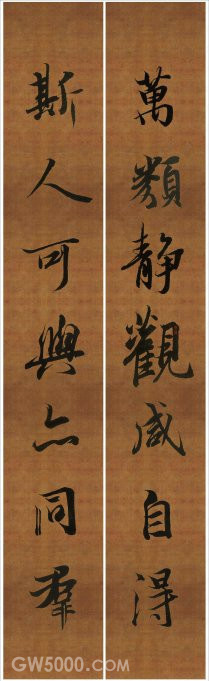 萬類静觀咸自得
斯人可與亦同羣
GW5000.COM